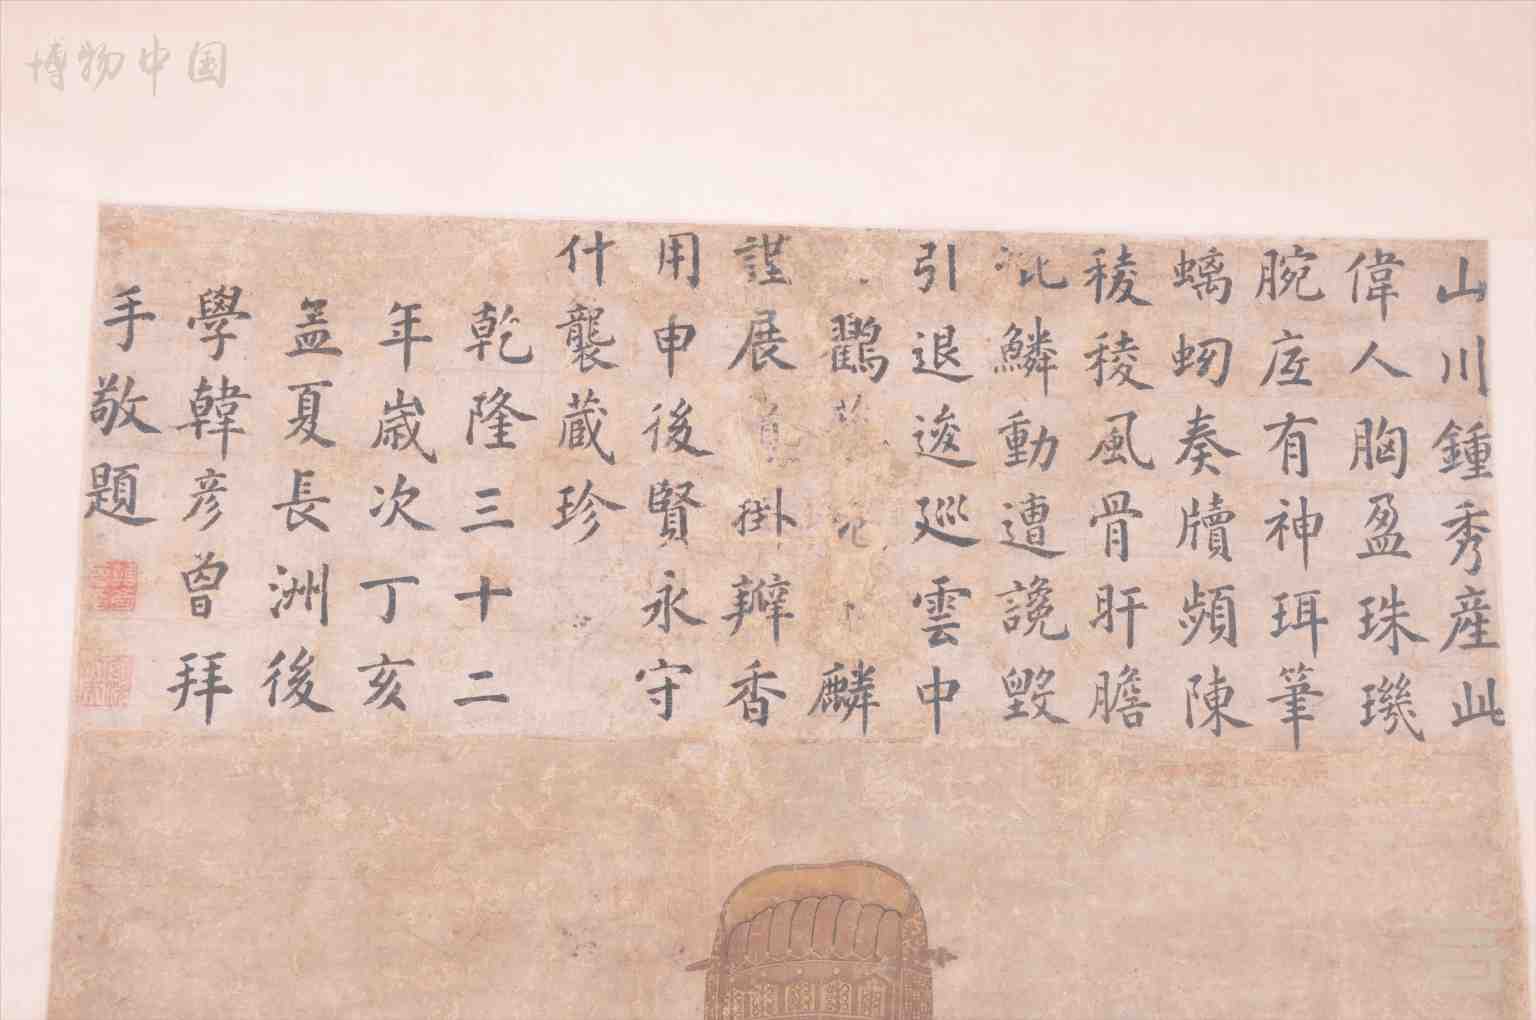 博物中国
山川鍾秀産此
偉人胸盈珠璣
腕底有神珥筆
螭蚴奏牘頻陳
稜稜風骨肝膽
批鱗動遭讒毀
引退逡巡雲中
鸛麟
謹展掛瓣香
用申後賢永守
什襲蔵珍
乾隆三十二
年歲次丁亥
孟夏長洲後
學韓彦曾拜
手敬題